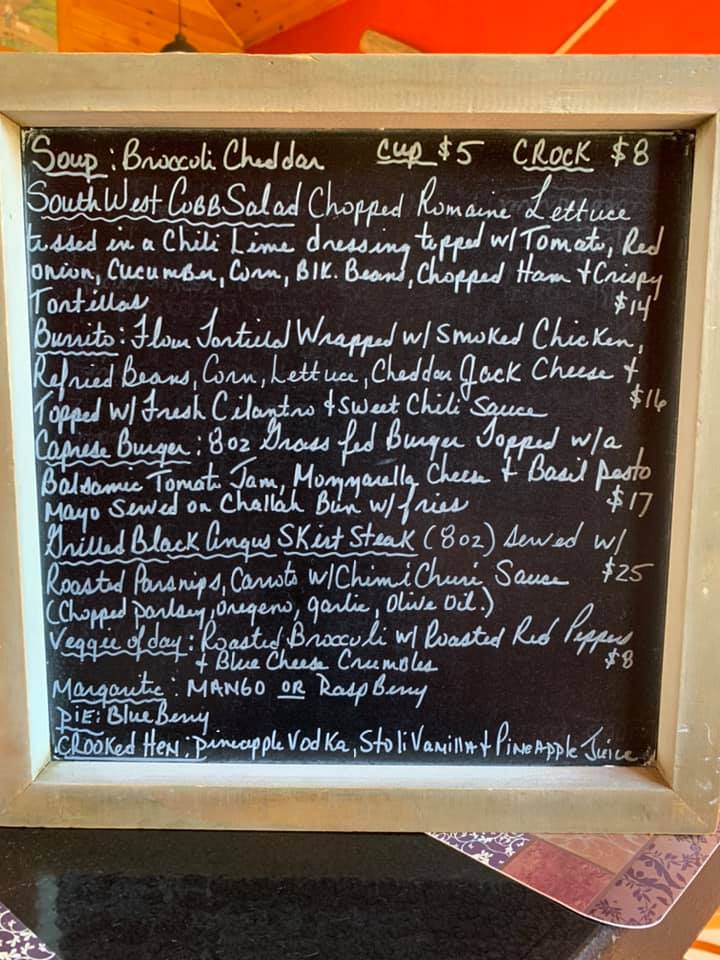 Soup: Broccoli Cheddar Cup $5 CRock $8
SouthWest CoBB Salad Chopped Romaine Lettuce
tossed in a Chili Lime dressing topped w/ Tomato, Red
onion, Cucumber, Corn, Blk. Beans, Chopped Ham + Crispy
Tortillas $14
Burrito: Flour Tortilla Wrapped w/ Smoked Chicken,
Refried Beans, Corn, Lettuce, Cheddar Jack Cheese +
Topped w/ Fresh Cilantro + Sweet Chili Sauce $16
Caprese Burger: 8oz Grass fed Burger Topped w/a
Balsamic Tomato Jam, Mozzarella Cheese + Basil pesto
Mayo Served on Challah Bun w/ fries $17
Grilled Black Angus Skirt Steak (8oz) Served w/
Roasted Parsnips, Carrots w/ Chimi Churi Sauce $25
(Chopped parsley, oregeno, garlic, Olive Oil.)
Veggie of day: Roasted Broccoli w/ Roasted Red Peppers
+ Blue Cheese Crumbles $8
Margarita: MANGO OR RaspBerry
PIE: BlueBerry
CROOKed HeN: Pineapple Vodka, Stoli Vanilla + PiNeAPPle Juice